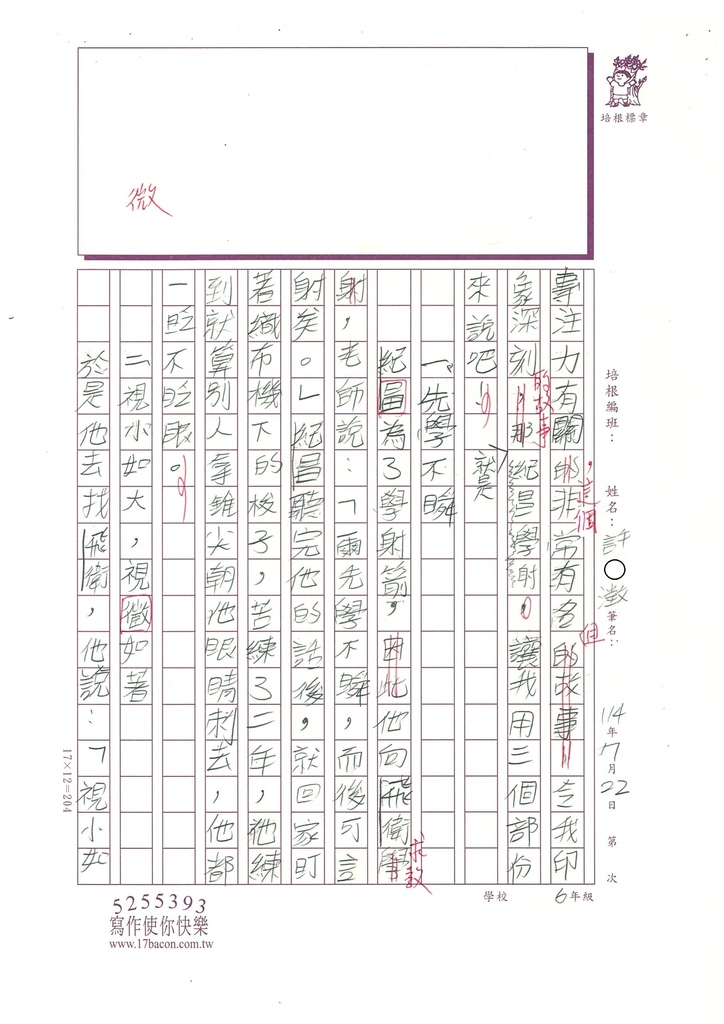 培根標章
微
培根編班：
姓名：許〇澂
筆名：
114年 月22日 第 次
專注力有關的非常有名的故事令我印
，這個
但
象深刻，那紀昌學射，讓我用三個部份
的故事
就是
來說吧！
一、先學不瞬
紀昌為了學射箭，因此他向飛衛學
求教
射，老師說：「爾先學不瞬，而後可言
射矣。」紀昌聽完他的話後，就回家盯
著織布機下的梭子，苦練了二年，他練
到就算別人拿錐尖朝他眼睛刺去，他都
一眨不眨眼。
二、視小如大，視微如著
於是他去找飛衛，他說：「視小如
17×12=204
學校 6年級
5255393
寫作使你快樂
www.17bacon.com.tw